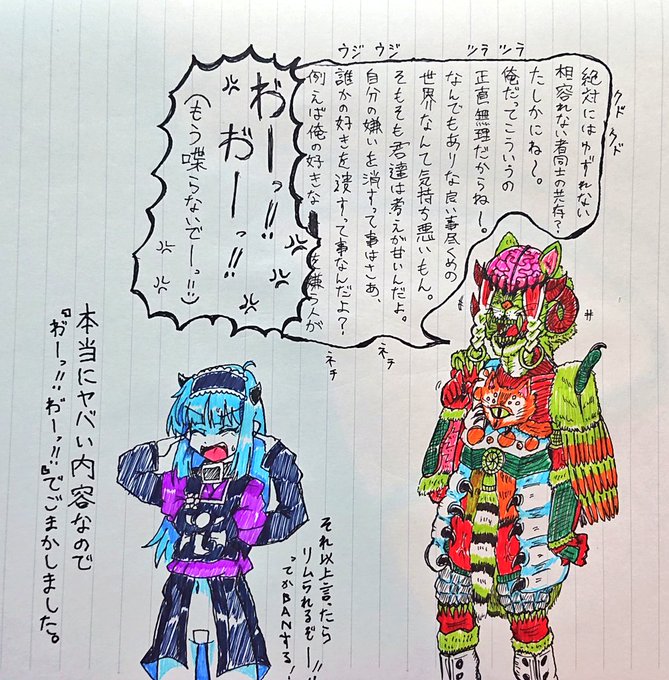 クドクド
絶対にはゆずれない
相容れない者同士の共存?
たしかにね〜。
俺だってこういうの
正直無理だからね〜。
なんでもありな良い事尽くめの
世界なんて気持ち悪いもん。
そもそも君達は考えが甘いんだよ。
自分の嫌いを消すって事はさぁ、
誰かの好きを潰すって事なんだよ?
例えば俺の好きな
を嫌う人が
ツラツラ
ウジウジ
ネチネチ
おーっ!!
おーっ!!
(もう喋らないでーっ!!)
それ以上言ったら
リムられるぞー!!
ってかBANする!
本当にヤバい内容なので
『おーっ!!おーっ!!』でごまかしました。